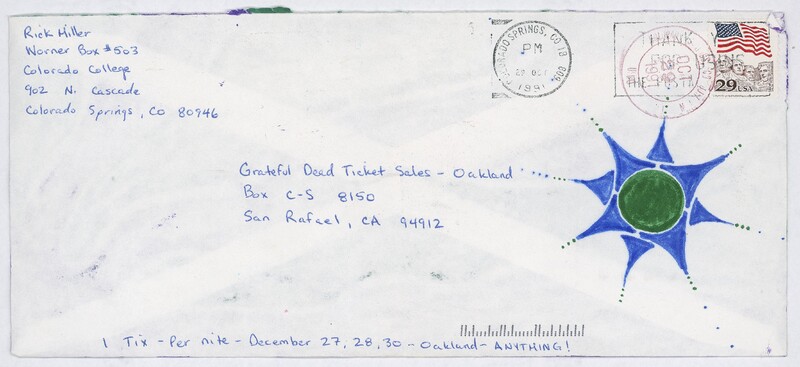 Rick Miller
Worner Box #503
Colorado College
902 N. Cascade
Colorado Springs, CO 80946
COLORADO SPRINGS, CO 809
PM
27 OCT
1991
THANK
THE
29 USA
Grateful Dead Ticket Sales - Oakland
Box C-S 8150
San Rafael, CA 94912
1 Tix - Per nite - December 27, 28, 30 - Oakland - ANYTHING!